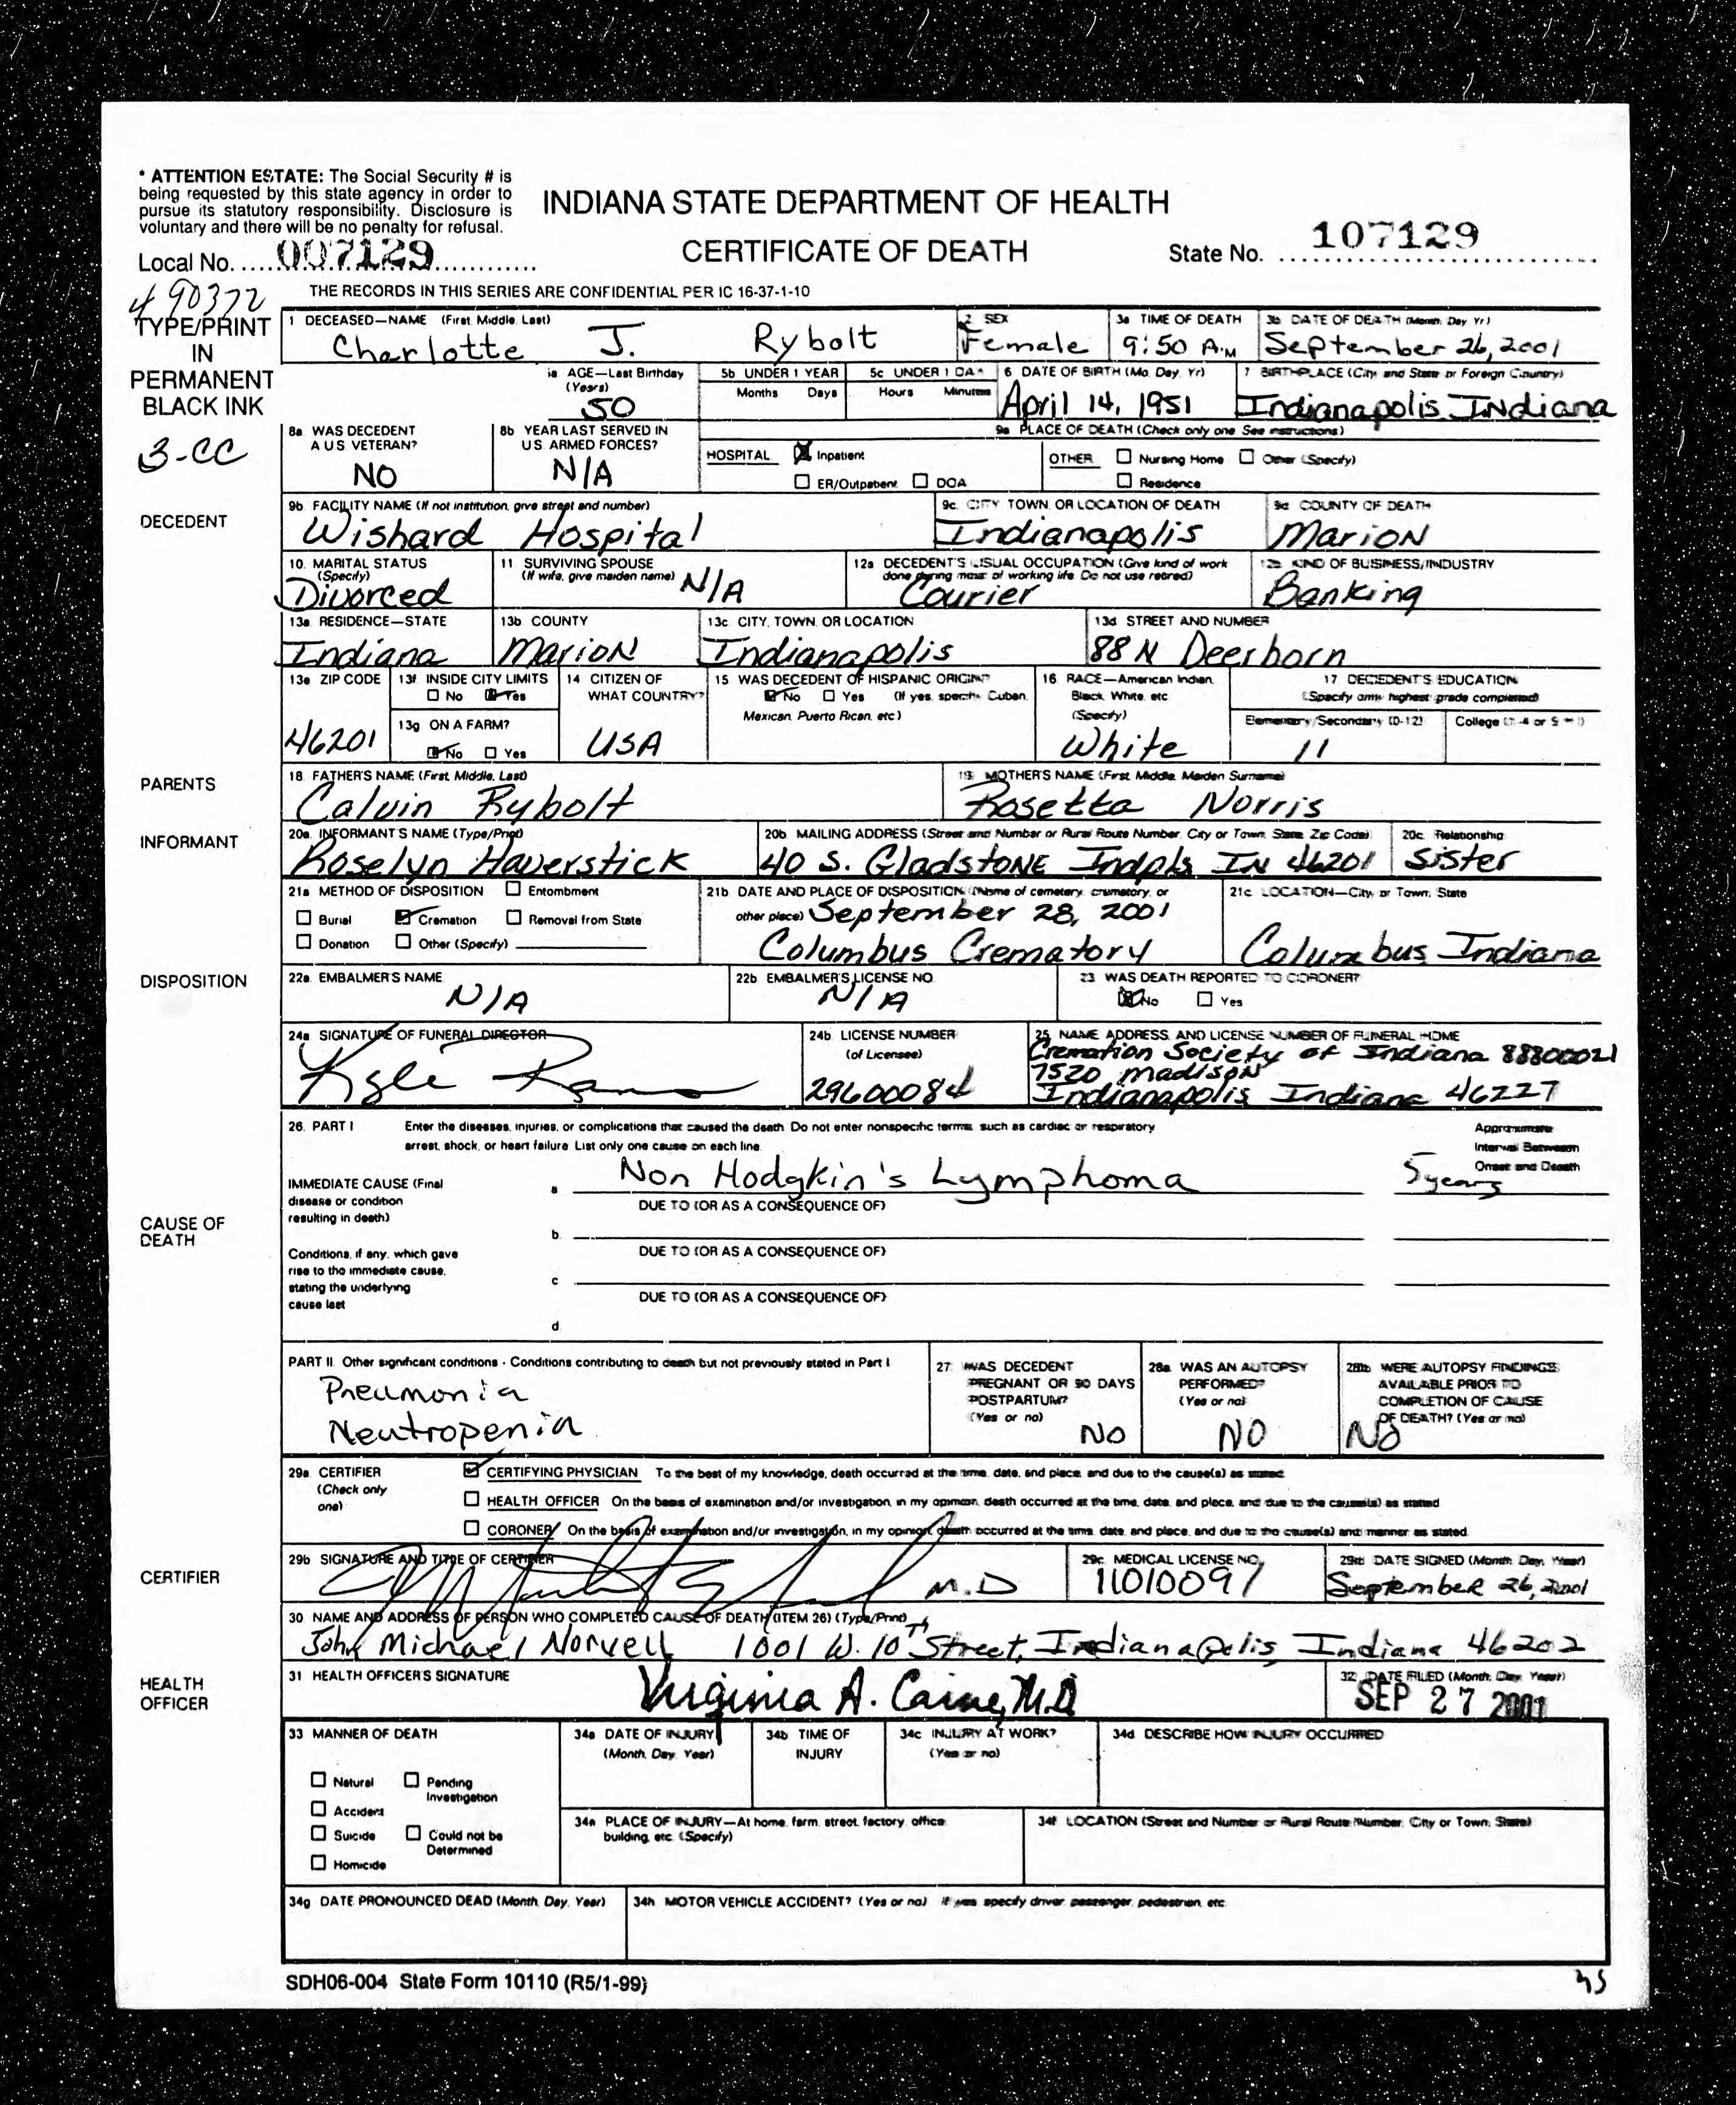 * ATTENTION ESTATE: The Social Security # is
being requested by this state agency in order to
pursue its statutory responsibility. Disclosure is
voluntary and there will be no penalty for refusal.
INDIANA STATE DEPARTMENT OF HEALTH
CERTIFICATE OF DEATH
Local No. 007129
State No. 107129
490372
THE RECORDS IN THIS SERIES ARE CONFIDENTIAL PER IC 16-37-1-10
TYPE/PRINT
IN
PERMANENT
BLACK INK
3-CC
1 DECEASED—NAME (First, Middle, Last)
Charlotte J. Rybolt
2 SEX
Female
3a TIME OF DEATH
9:50 A.M
3b DATE OF DEATH (Month, Day, Yr)
September 26, 2001
AGE—Last Birthday
(Years)
50
5b UNDER 1 YEAR
Months Days
5c UNDER 1 DAY
Hours Minutes
6 DATE OF BIRTH (Mo, Day, Yr)
April 14, 1951
7 BIRTHPLACE (City and State or Foreign Country)
Indianapolis, Indiana
DECEDENT
8a WAS DECEDENT
A U S VETERAN?
NO
8b YEAR LAST SERVED IN
U S ARMED FORCES?
N/A
9a PLACE OF DEATH (Check only one See instructions)
HOSPITAL Inpatient
ER/Outpatient DOA
OTHER Nursing Home Other (Specify)
Residence
9b. FACILITY NAME (If not institution, give street and number)
Wishard Hospital
9c. CITY TOWN OR LOCATION OF DEATH
Indianapolis
9d COUNTY OF DEATH
Marion
10. MARITAL STATUS
(Specify)
Divorced
11 SURVIVING SPOUSE
(If wife, give maiden name)
N/A
12a DECEDENT'S USUAL OCCUPATION (Give kind of work
done during most of working life Do not use retired)
Courier
12b KIND OF BUSINESS/INDUSTRY
Banking
13a. RESIDENCE—STATE
Indiana
13b COUNTY
Marion
13c. CITY, TOWN, OR LOCATION
Indianapolis
13d STREET AND NUMBER
88 N Deerborn
13e ZIP CODE
46201
13f INSIDE CITY LIMITS
No Yes
13g ON A FARM?
No Yes
14 CITIZEN OF
WHAT COUNTRY?
USA
15 WAS DECEDENT OF HISPANIC ORIGIN?
No Yes (If yes, specify Cuban,
Mexican, Puerto Rican, etc)
16 RACE—American Indian,
Black, White, etc
(Specify)
White
17 DECEDENT'S EDUCATION
(Specify only highest grade completed)
Elementary/Secondary (0-12)
11
College (1-4 or 5+)
PARENTS
18. FATHER'S NAME (First, Middle, Last)
Calvin Rybolt
19. MOTHER'S NAME (First, Middle, Maiden Surname)
Rosetta Norris
INFORMANT
20a. INFORMANT'S NAME (Type/Print)
Roselyn Haverstick
20b MAILING ADDRESS (Street and Number or Rural Route Number, City or Town, State, Zip Code)
40 S. Gladstone Indpls IN 46201
20c. Relationship
Sister
DISPOSITION
21a METHOD OF DISPOSITION Entombment
Burial Cremation Removal from State
Donation Other (Specify)
21b DATE AND PLACE OF DISPOSITION (Name of cemetery, crematory, or
other place) September 28, 2001
Columbus Crematory
21c LOCATION—City or Town, State
Columbus, Indiana
22a. EMBALMER'S NAME
N/A
22b EMBALMER'S LICENSE NO.
N/A
23 WAS DEATH REPORTED TO CORONER?
No Yes
24a SIGNATURE OF FUNERAL DIRECTOR
Kyle
24b LICENSE NUMBER
(of Licensee)
29600084
25 NAME, ADDRESS, AND LICENSE NUMBER OF FUNERAL HOME
Cremation Society of Indiana 88800021
7520 Madison
Indianapolis Indiana 46227
CAUSE OF
DEATH
26. PART I Enter the diseases, injuries, or complications that caused the death. Do not enter nonspecific terms, such as cardiac or respiratory
arrest, shock, or heart failure. List only one cause on each line.
Approximate
Interval Between
Onset and Death
IMMEDIATE CAUSE (Final
disease or condition
resulting in death)
a Non Hodgkin's Lymphoma 5 years
DUE TO (OR AS A CONSEQUENCE OF)
b.
Conditions, if any, which gave
rise to the immediate cause,
stating the underlying
cause last
DUE TO (OR AS A CONSEQUENCE OF)
c
DUE TO (OR AS A CONSEQUENCE OF)
d
PART II. Other significant conditions - Conditions contributing to death but not previously stated in Part I.
Pneumonia
Neutropenia
27 WAS DECEDENT
PREGNANT OR 90 DAYS
POSTPARTUM?
(Yes or no)
NO
28a WAS AN AUTOPSY
PERFORMED?
(Yes or no)
NO
28b WERE AUTOPSY FINDINGS
AVAILABLE PRIOR TO
COMPLETION OF CAUSE
OF DEATH? (Yes or no)
NO
CERTIFIER
29a. CERTIFIER
(Check only
one)
CERTIFYING PHYSICIAN To the best of my knowledge, death occurred at the time, date, and place, and due to the cause(s) as stated
HEALTH OFFICER On the basis of examination and/or investigation, in my opinion, death occurred at the time, date, and place, and due to the cause(s) as stated
CORONER On the basis of examination and/or investigation, in my opinion, death occurred at the time, date, and place, and due to the cause(s) and manner as stated.
29b SIGNATURE AND TITLE OF CERTIFIER
M.D
29c. MEDICAL LICENSE NO.
11010097
29d DATE SIGNED (Month, Day, Year)
September 26, 2001
30 NAME AND ADDRESS OF PERSON WHO COMPLETED CAUSE OF DEATH (ITEM 26) (Type/Print)
John Michael Norvell 1001 W. 10th Street, Indianapolis, Indiana 46202
HEALTH
OFFICER
31 HEALTH OFFICER'S SIGNATURE
Virginia A. Caine, M.D
32 DATE FILED (Month, Day, Year)
SEP 27 2001
33 MANNER OF DEATH
Natural Pending
Investigation
Accident
Suicide Could not be
Determined
Homicide
34a DATE OF INJURY
(Month, Day, Year)
34b TIME OF
INJURY
34c INJURY AT WORK?
(Yes or no)
34d DESCRIBE HOW INJURY OCCURRED
34e PLACE OF INJURY—At home, farm, street, factory, office
building, etc. (Specify)
34f LOCATION (Street and Number or Rural Route Number, City or Town, State)
34g DATE PRONOUNCED DEAD (Month, Day, Year)
34h MOTOR VEHICLE ACCIDENT? (Yes or no) If yes, specify driver, passenger, pedestrian, etc.
SDH06-004 State Form 10110 (R5/1-99)